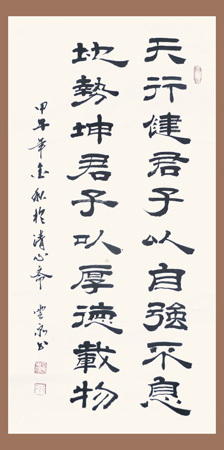 天行健君子以自強不息
地勢坤君子以厚德載物
甲午年金秋於清心齋